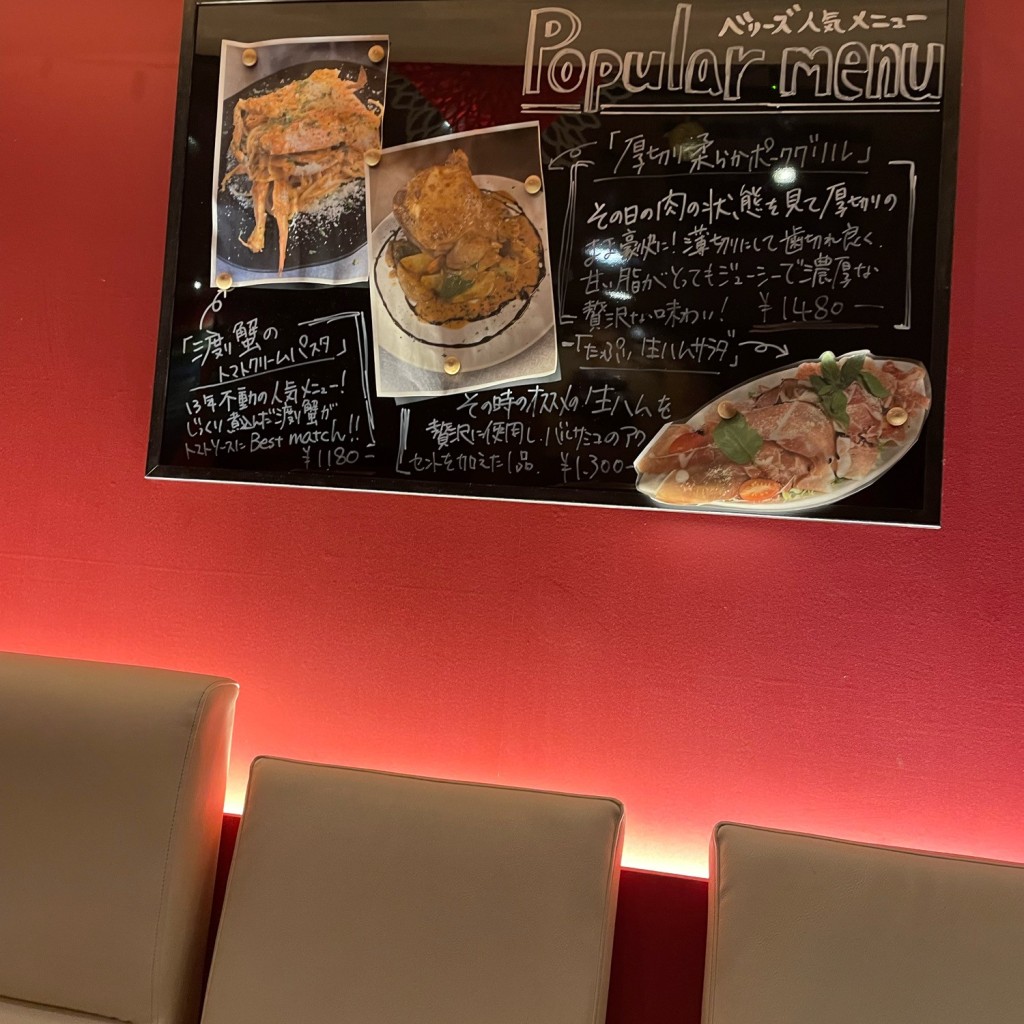 ベリーズ人気メニュー
Popular menu
「厚切り柔らかポークグリル」
その日の肉の状態を見て厚切りの
まま豪快に!薄切りにして歯切れ良く、
甘い脂がとてもジューシーで濃厚な
贅沢な味わい! ¥1480-
「渡り蟹の
トマトクリームパスタ」
13年不動の人気メニュー!
じっくり煮込んだ渡り蟹が
トマトソースにBest match!!
¥1180-
「たっぷり生ハムサラダ」
その時のオススメの生ハムを
贅沢に使用し、バルサミコのアク
セントを加えた1品。 ¥1.300-